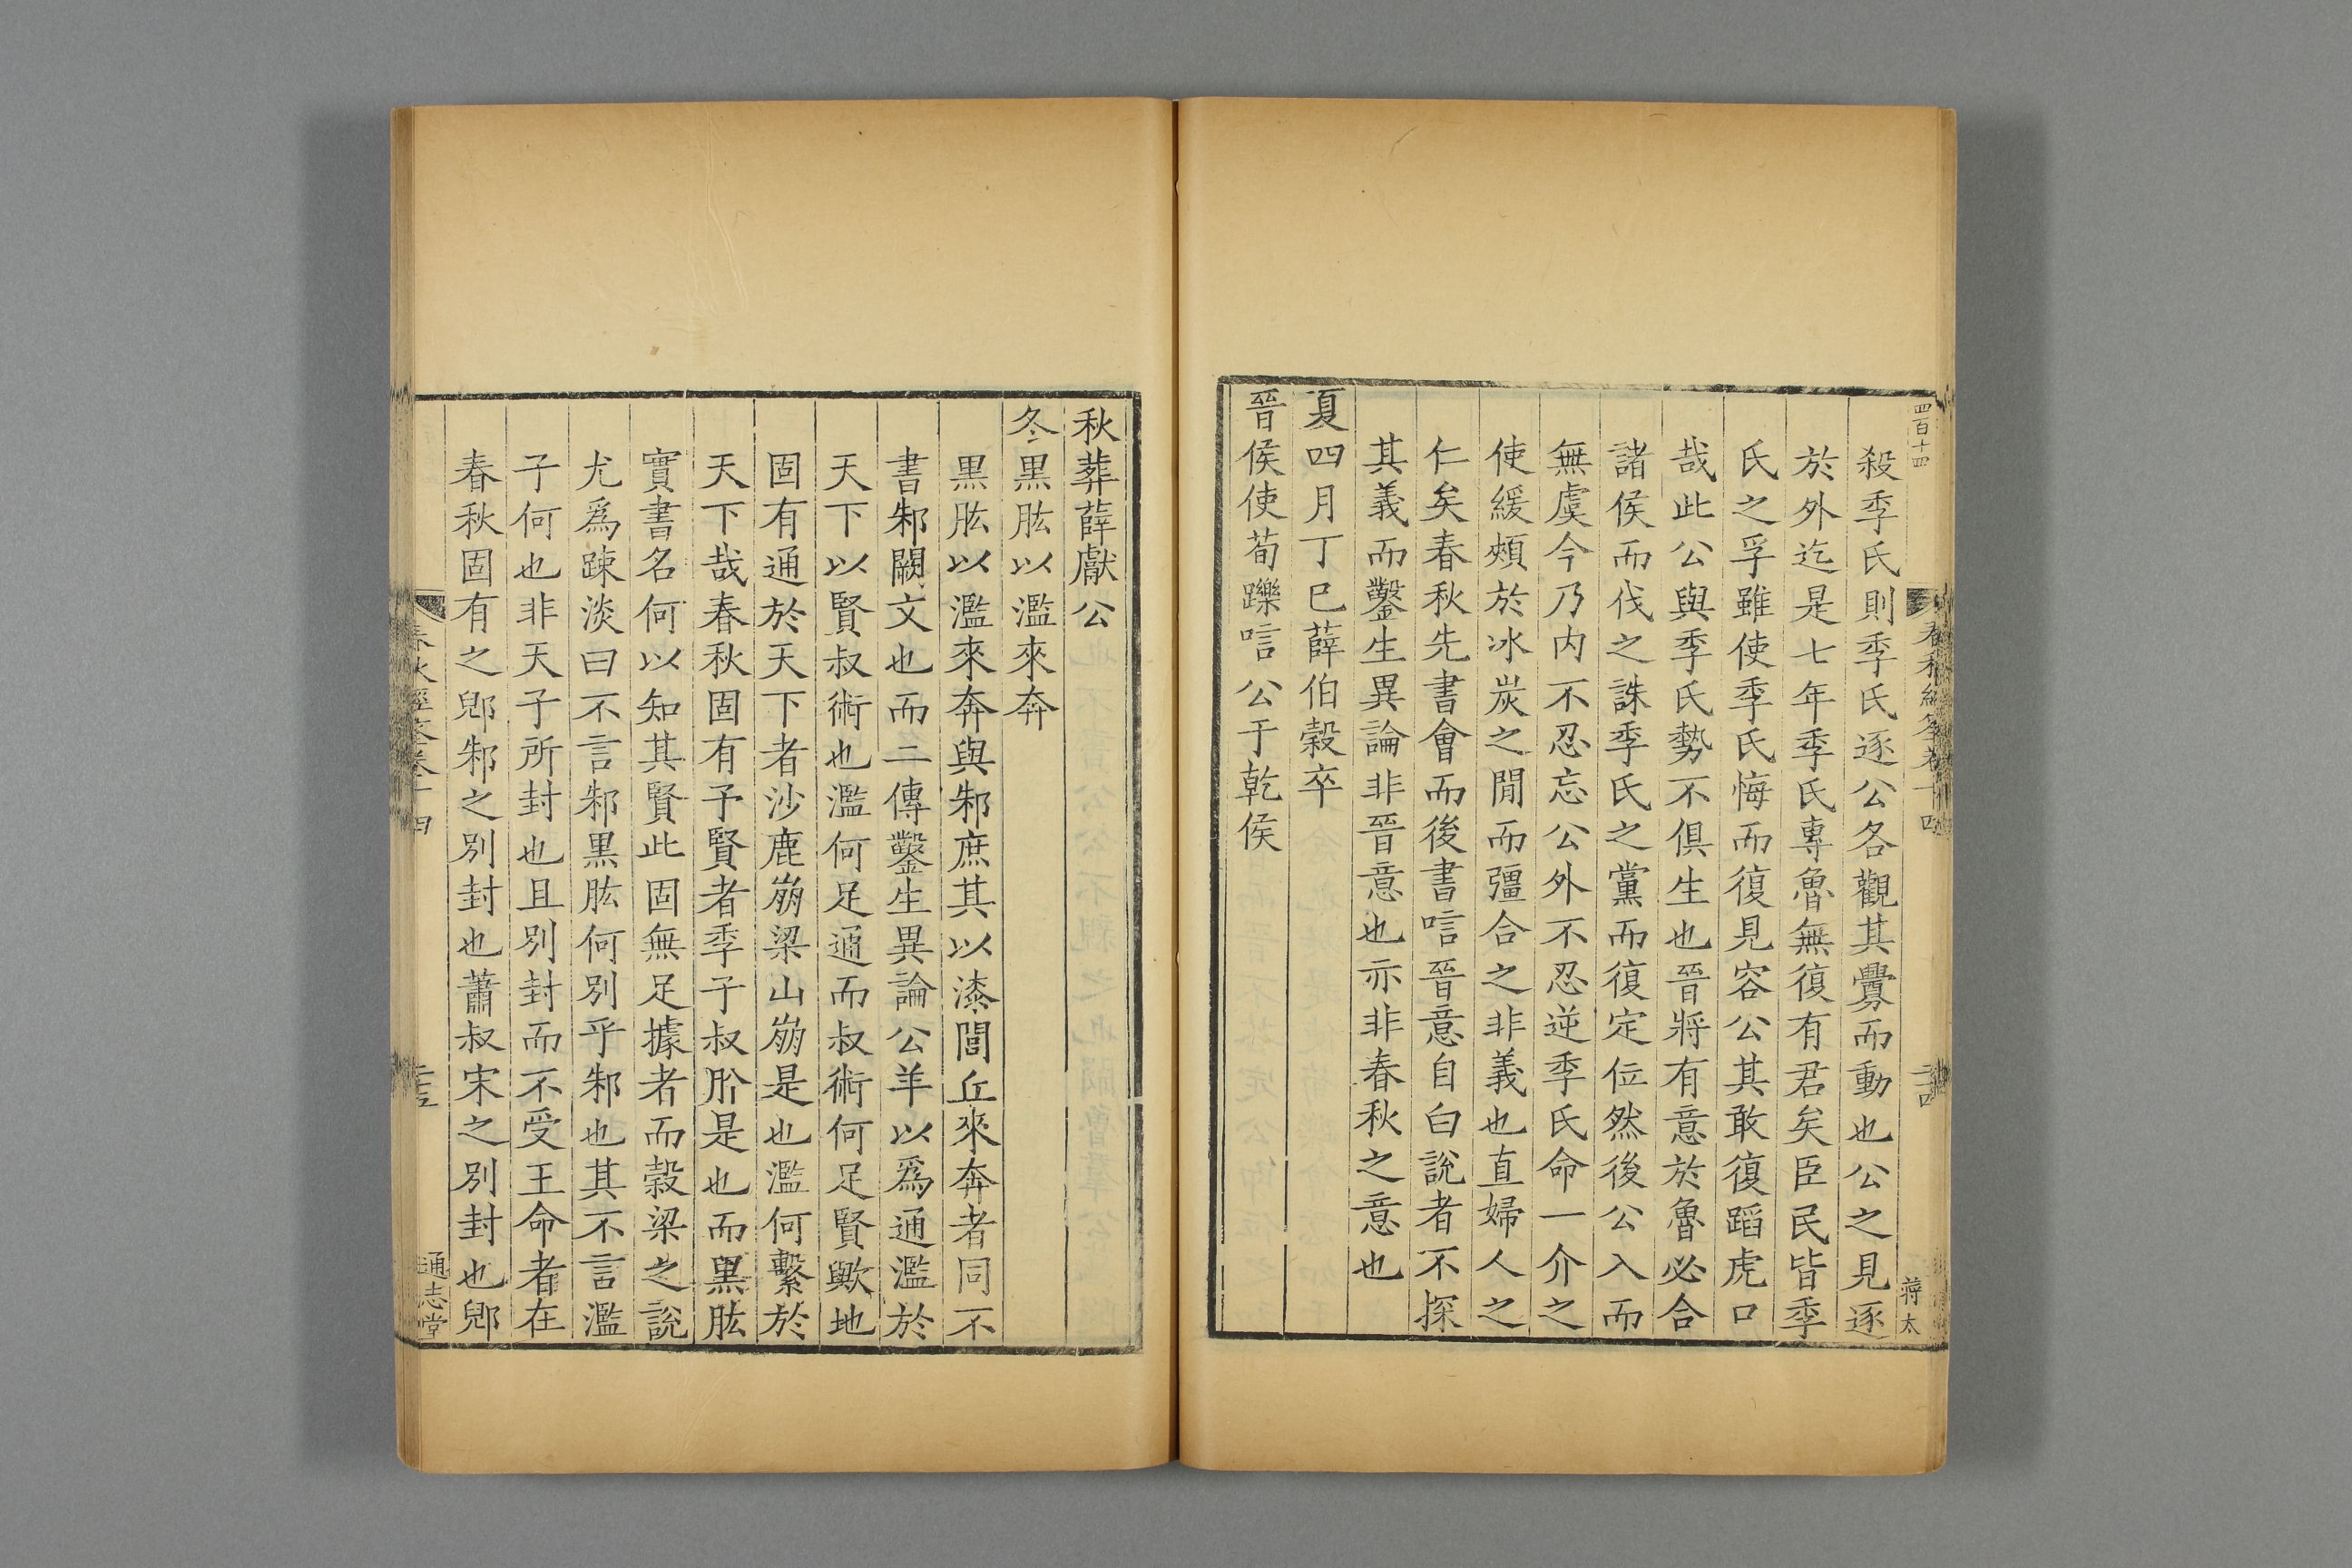 四百十四
殺季氏則季氏逐公各觀其釁而動也公之見逐
於外迄是七年季氏專魯無復有君矣臣民皆季
氏之孚雖使季氏悔而復見容公其敢復蹈虎口
哉此公與季氏勢不俱生也晉將有意於魯必合
諸侯而伐之誅季氏之黨而復定位然後公入而
無虞今乃内不忍忘公外不忍逆季氏命一介之
使緩頰於冰炭之間而彊合之非義也直婦人之
仁矣春秋先書會而後書唁晉意自白說者不探
其義而鑿生異論非晉意也亦非春秋之意也
夏四月丁巳薛伯穀卒
晉侯使荀躒唁公于乾侯
蔣太
秋葬薛獻公
冬黒肱以濫來奔
黒肱以濫來奔與邾庶其以漆閭丘來奔者同不
書邾闕文也而二傳鑿生異論公羊以爲通濫於
天下以賢叔術也濫何足通而叔術何足賢歟地
固有通於天下者沙鹿崩梁山崩是也濫何繫於
天下哉春秋固有予賢者季子叔肸是也而黒肱
實書名何以知其賢此固無足據者而穀梁之說
尤爲踈淡曰不言邾黒肱何別乎邾也其不言濫
子何也非天子所封也且別封而不受王命者在
春秋固有之郳邾之別封也蕭叔宋之別封也郳
春秋經筌卷十四
通志堂